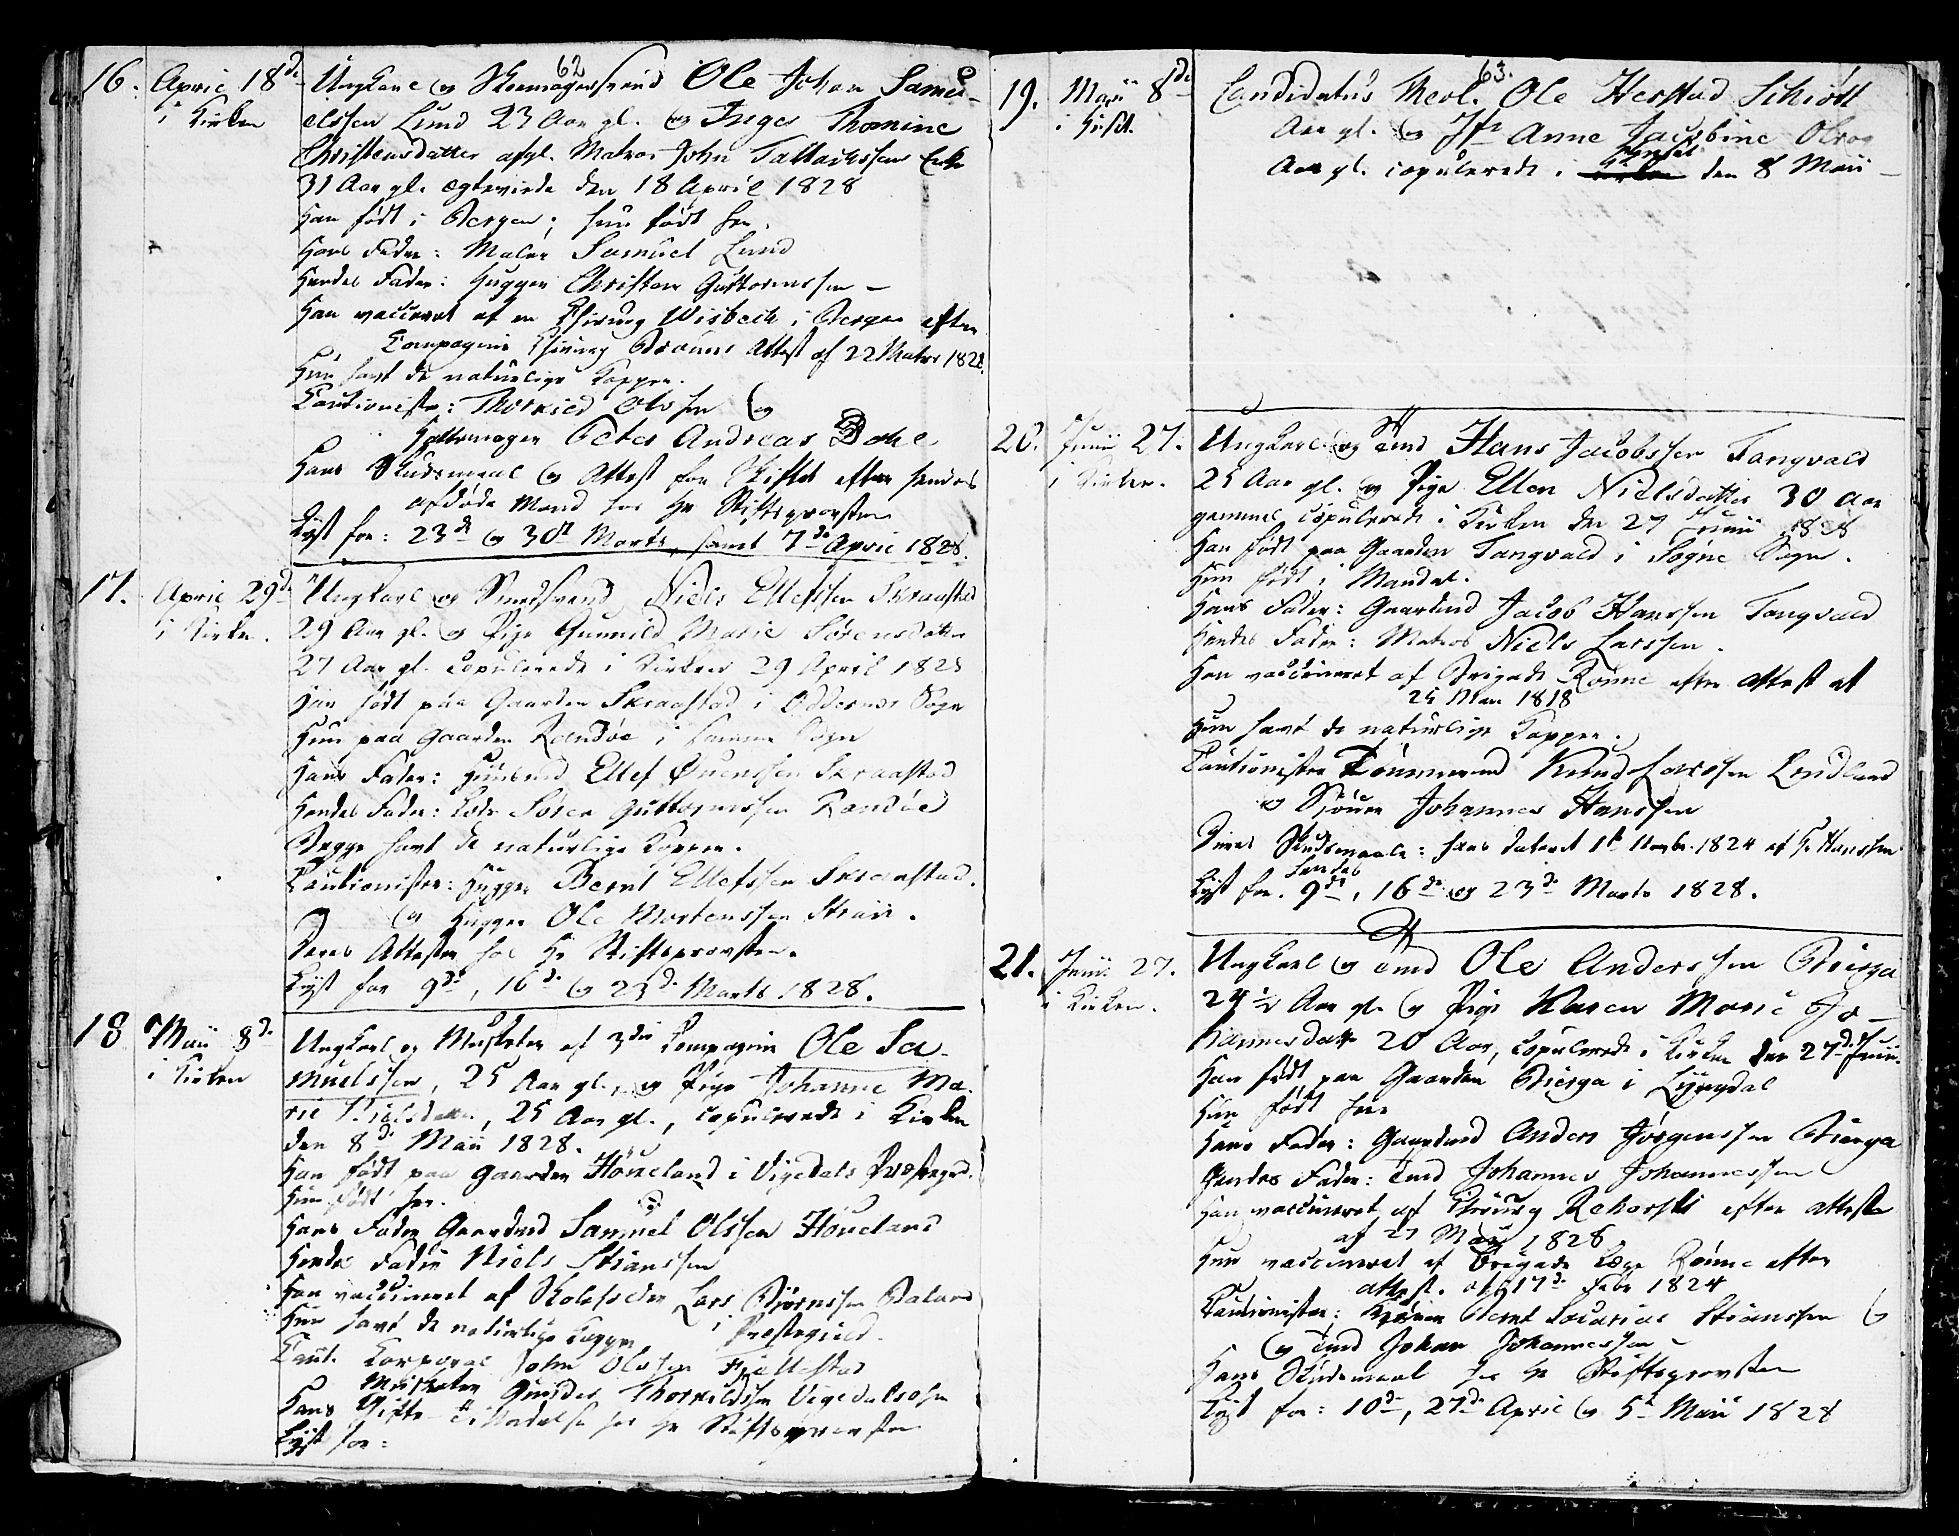 62
16. April 18de Ungkarl og Skomagersvend Ole Johan Samu-
i Kirken elssen Lund 23 Aar gl. og Inger Thomine
Christensdatter afgl. Matros John Tallachssens Enke
31 Aar gl. ægteviede den 18 April 1828
Han født i Bergen; hun født her.
Hans Fader: Maler Samuel Lund
Hendes Fader: Hugger Christen Guttormssen –
Han vaccineret af en Chirurg Wisbech i Bergen efter
Compagnie Chirurg Brauns Attest af 22 Marts 1828.
Hun havt de naturlige Kopper.
Cautionister: Thorkild Olsen og
Hattemager Peter Andreas
Hans Skudsmaal og Attest for Skiftet efter hendes
afdøde Mand hos Hr Stiftsprovsten
Lyst for: 23de og 30te Marts, samt 7de April 1828.
17. April 29de Ungkarl og Smedsvend Niels Ellefssen Skraastad
i Kirken. 29 Aar gl. og Pige Gunnild Marie Sørensdatter
27 Aar gl. copulerede i Kirken 29 April 1828
Han født paa Gaarden Skraastad i Oddernes Sogn
Hun paa Gaarden Randøe i samme Sogn
Hans Fader: Huusmd Ellef Ouenssen Skraastad
Hendes Fader: Lods Søren Guttormssen Randøe
Begge havt de naturlige Kopper.
Cautionister: Hugger Bernt Ellefssen Skraastad.
og Hugger Ole Mortenssen Straii.
Deres Attester hos Hr Stiftsprovsten.
Lyst for 9de, 16de og 23de Marts 1828.
18 Maii 8de Ungkarl og Musketer af 3die Compagnie Ole Sa-
i Kirken muelssen, 25 Aar gl., og Pige Johanne Ma-
rie Nielsdatter, 25 Aar gl., copulerede i Kirken
den 8de Maii 1828.
Han født paa Gaarden Høueland i Vigedals Præstegield.
Hun født her.
Hans Fader Gaardmd Samuel Olssen Høueland
Hendes Fader Niels Stianssen
Han vaccineret af Skoleholder Lars Biørnssen
i Præstegield.
Hun havt de naturlige Kopper
Caut. Corporal John Olssen Fjellestad
Musketer Gunder Thorkildsen
Hans Gifte-Tilladelse hos Hr Stiftsprovsten
Lyst for:
63.
19. Maii 8de Candidatus Theol. Ole Herstad Schiøtt
i Huset. Aar gl. og Jfr Anne Jacobine Olrog
Aar gl. copulerede i Huset den 8 Maii –
20. Junii 27. Ungkarl og Tmd Hans Jacobssen Tangvald
i Kirken. 25 Aar gl. og Pige Ellen Nielsdatter 30 Aar
gammel copulerede i Kirken den 27 Junii 1828
Han født paa Gaarden Tangvald i Søgne Sogn.
Hun født i Mandal.
Hans Fader: Gaardmd Jacob Hanssen Tangvald
Hendes Fader: Matros Niels Larssen.
Han vaccineret af Brigade Rønne efter Attest af
25 Mai 1818
Hun havt de naturlige Kopper.
Cautionister Tømmermd Knud Larssen Lindland
og Skiøper Johannes Hanssen
Deres Skudsmaale: hans dateret 1te Novbr. 1824 af Hr Hanssen
Lyst for. 9de, 16de og 23de Marts 1828.
21. Junii 27. Ungkarl og Tmd Ole Anderssen Bierga
i Kirken. 24½ Aar gl. og Pige Karen Marie Jo-
hannesdatter 20 Aar, copulerede i Kirken den 27de Junii.
Han født paa Gaarden Bierga i Lyngdal
Hun født her
Hans Fader: Gaardmd Anders Jørgenssen Bierga
Hendes Fader: Tmd Johannes Johannessen
Han vaccineret af Chirurg Rehorst efter Attest
af 27 Maii 1828
Hun vaccineret af Brigade Læge Rønne efter
Attest. af 17de Febr 1824
Cautionister: Bernt Zacarias Stianssen
og Tmd Johan Johannessen –
Hans Skudsmaal hos Hr Stiftsprovsten
Lyst for: 10de, 27de April og 5te Maii 1828